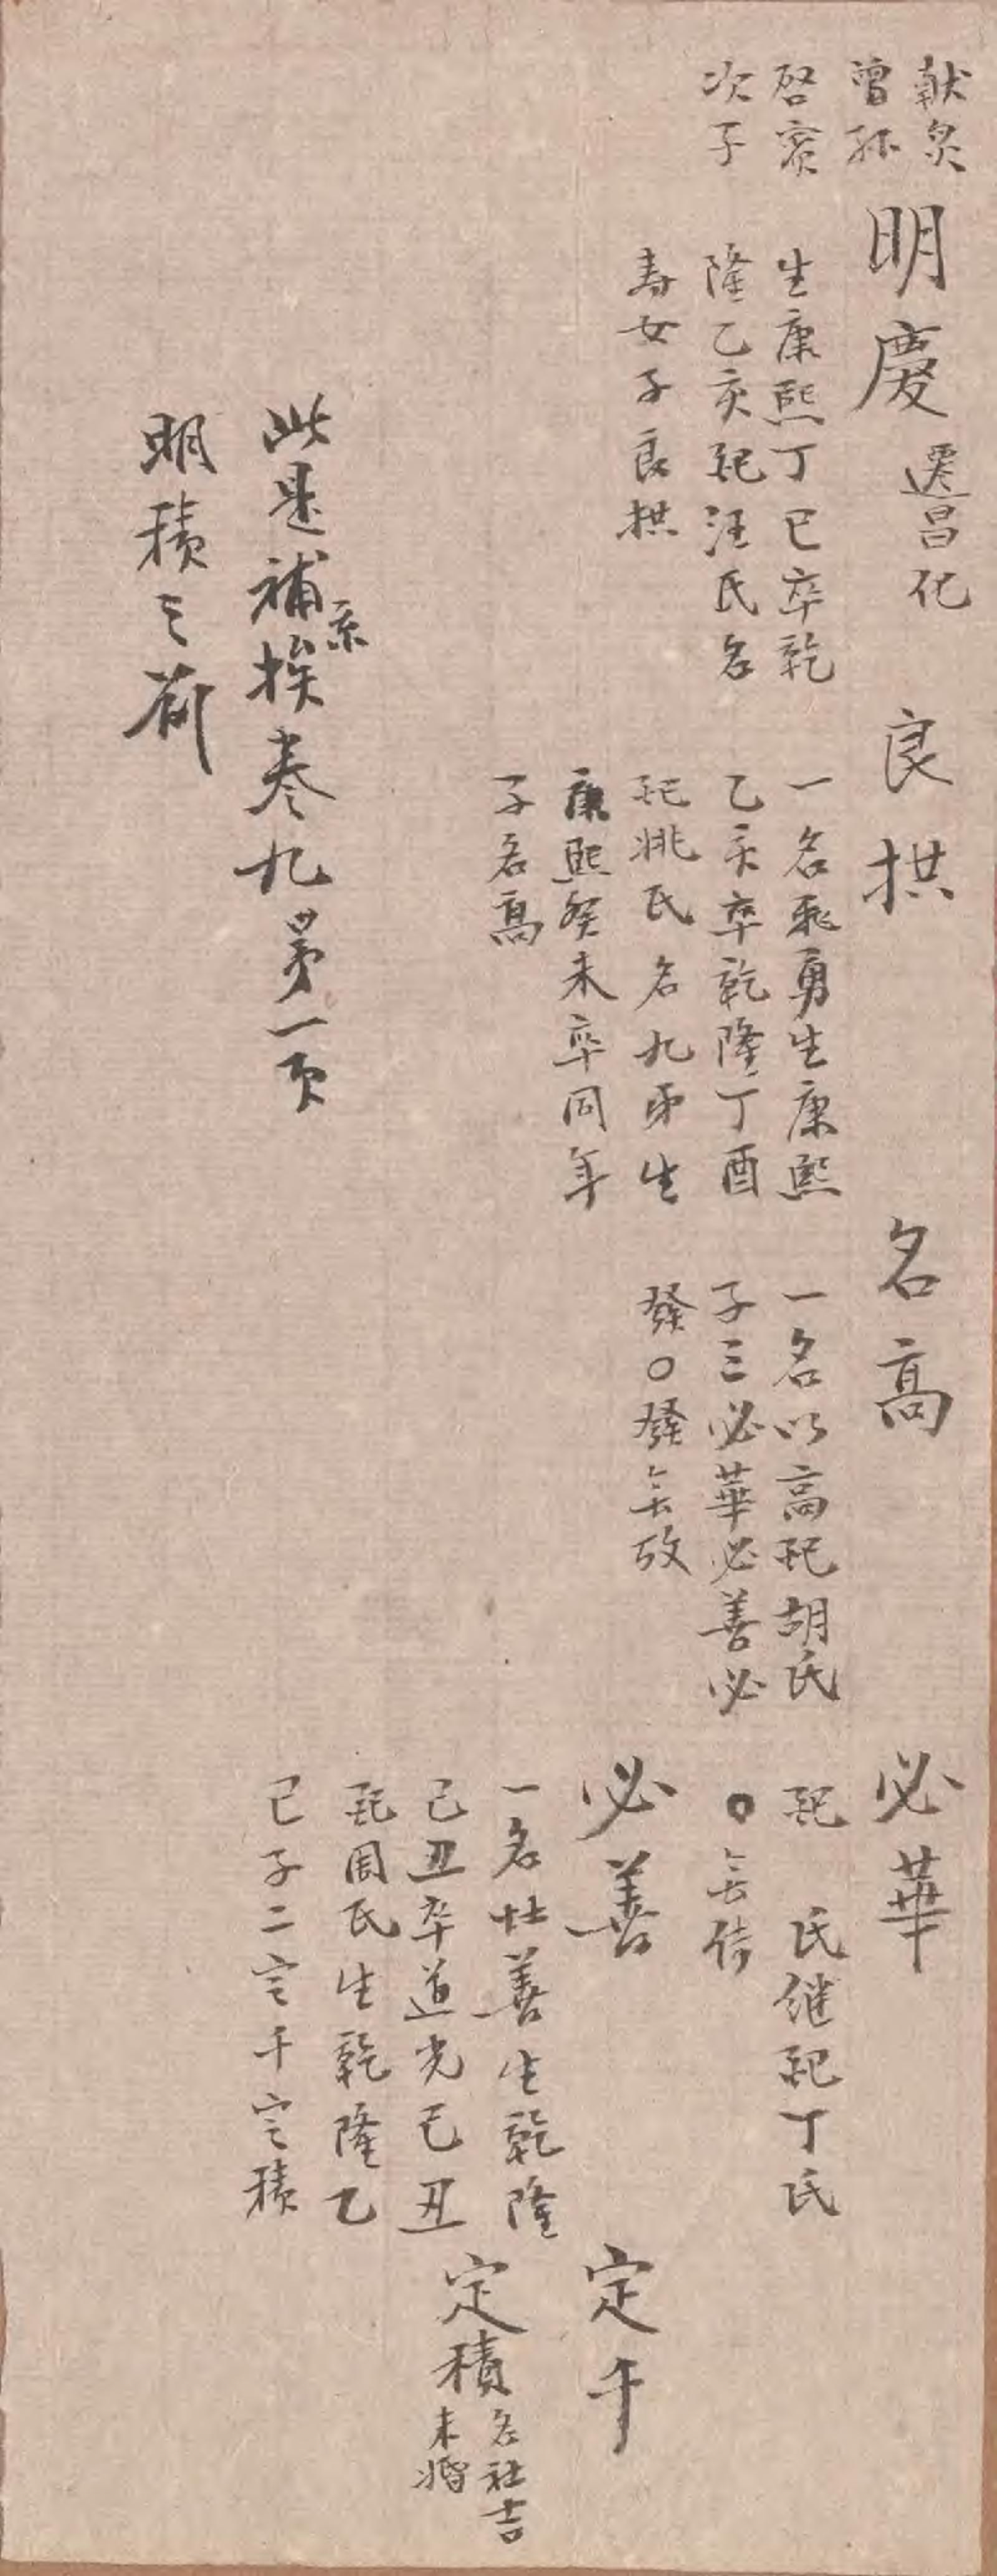 献炅
曾孫
啓賓
次子
明慶 遷昌化
生康熙丁巳卒乾
隆乙亥配汪氏名
寿女子良拱
良拱
一名飛勇生康熙
乙亥卒乾隆丁酉
配姚氏名九弟生
康熙癸未卒同年
子名高
名高
一名以高配胡氏
子三必華必善必
發○發無攷
必華
配 氏继配丁氏
○無传
必善
一名社善生乾隆
己丑卒道光己丑
配周氏生乾隆乙
巳子二定千定積
定千
定積 名社吉
未婚
此是補系挨卷九第一頁
明積之前